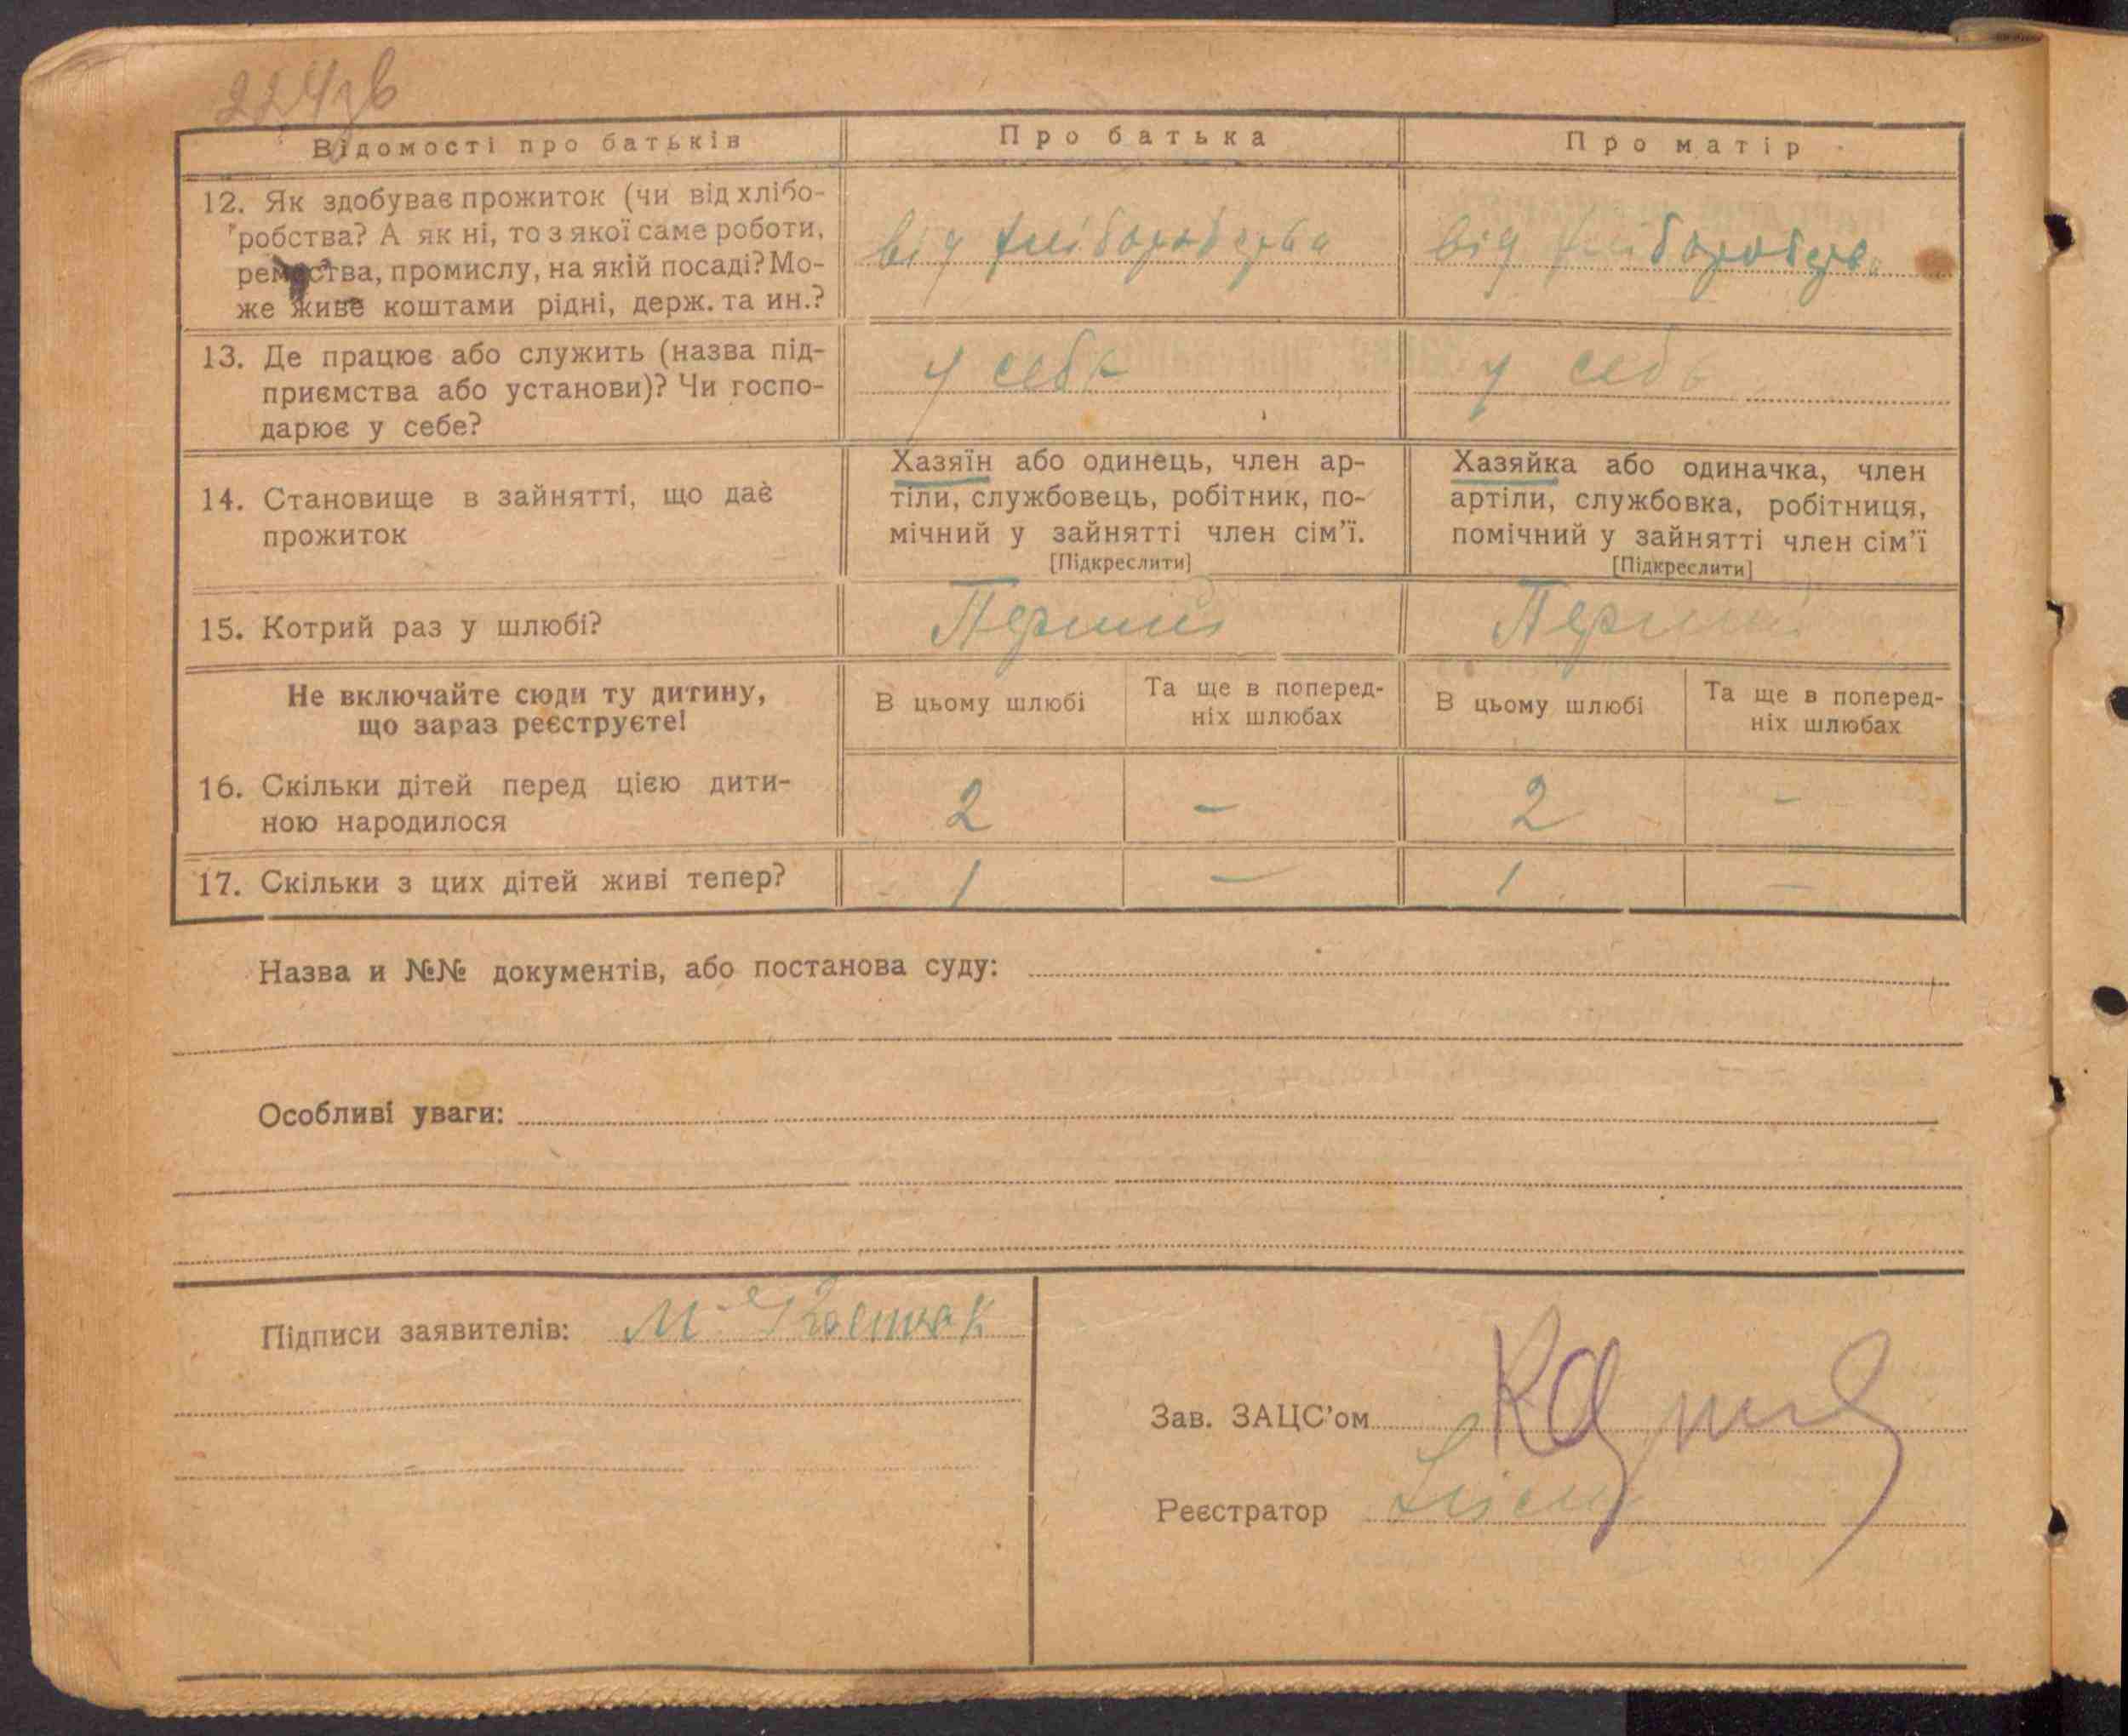 224зв
Відомості про батьків
Про батька
Про матір
12. Як здобуває прожиток (чи від хлібо-
робства? А як ні, то з якої саме роботи,
ремества, промислу, на якій посаді? Мо-
же живе коштами рідні, держ. та ин.?
від хліборобства
від хліборобства
13. Де працює або служить (назва під-
приємства або установи)? Чи госпо-
дарює у себе?
у себе
у себе
14. Становище в зайнятті, що дає
прожиток
Хазяїн або одинець, член ар-
тіли, службовець, робітник, по-
мічний у зайнятті член сім’ї.
[Підкреслити]
Хазяйка або одиначка, член
артіли, службовка, робітниця,
помічний у зайнятті член сім’ї
[Підкреслити]
15. Котрий раз у шлюбі?
Перший
Перший
Не включайте сюди ту дитину,
що зараз реєструєте!
В цьому шлюбі
Та ще в поперед-
ніх шлюбах
В цьому шлюбі
Та ще в поперед-
ніх шлюбах
16. Скільки дітей перед цією дити-
ною народилося
2 – 2 –
17. Скільки з цих дітей живі тепер?
1 – 1 –
Назва и №№ документів, або постанова суду:
Особливі уваги:
Підписи заявителів: М.
Зав. ЗАЦС’ом
Реєстратор